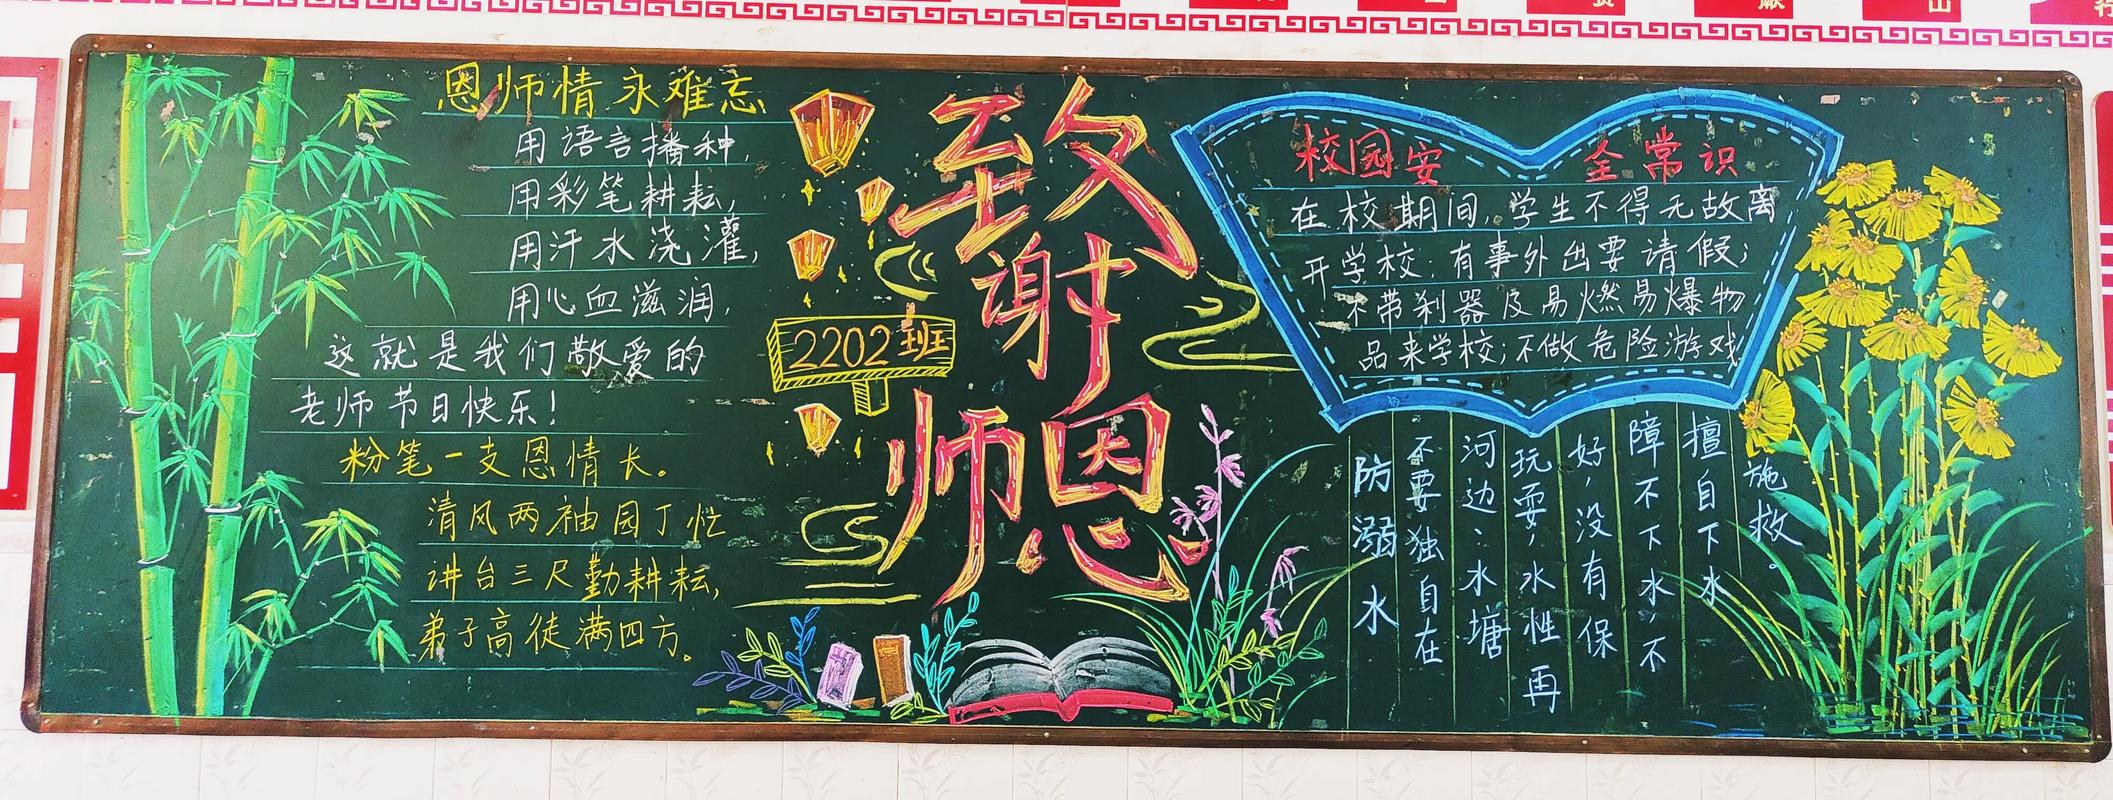 恩师情永难忘
用语言播种,
用彩笔耕耘,
用汗水浇灌,
用心血滋润,
这就是我们敬爱的
老师节日快乐!
粉笔一支恩情长。
清风两袖园丁忙
讲台三尺勤耕耘,
弟子高徒满四方。
2202班
致
谢
师恩
校园安全常识
在校期间,学生不得无故离
开学校;有事外出要请假;
不带利器及易燃易爆物
品来学校;不做危险游戏
防溺水
不要独自在
河边、水塘
玩耍,水性再
好,没有保
障不下水,不
擅自下水
施救。